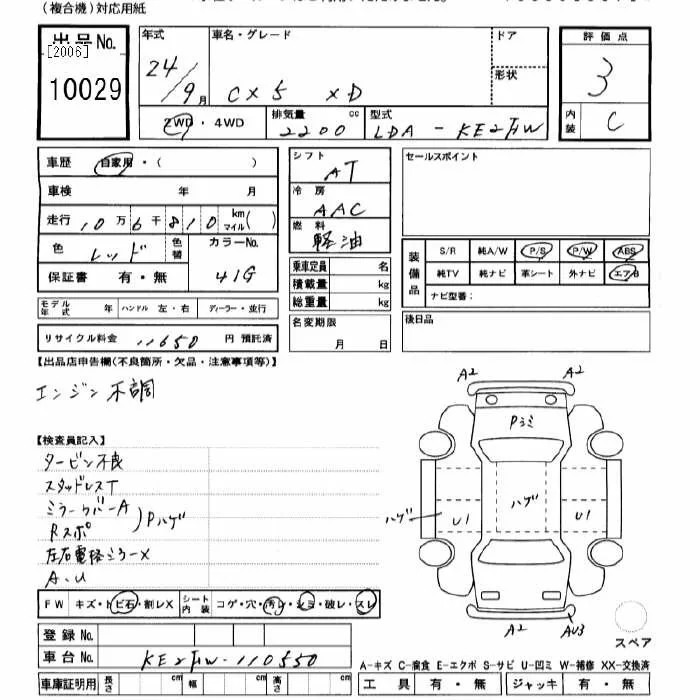 (複合機)対応用紙
出品No. 年式 車名・グレード ドア 評価点
[2006]
10029 24/9月 CX5 XD 形状 3
2WD・4WD 排気量 cc 2200 型式 LDA-KE2FW 内装 C
車歴 自家用・( ) シフト AT セールスポイント
車検 年 月 冷房 AAC
走行 10万6千810 km マイル( ) 燃料 軽油
色 レッド 色替 カラーNo. 41G
装備品 S/R 純A/W P/S P/W ABS
保証書 有・無 乗車定員 名 純TV 純ナビ 革シート 外ナビ エアB
積載量 kg ナビ型番:
モデル年式 年 ハンドル 左・右 ディーラー・並行 総重量 kg
リサイクル料金 11650 円 預託済 名変期限 月 日 後日品
【出品店申告欄(不良箇所・欠品・注意事項等)】
エンジン不調
A2 A2
Pシミ
【検査員記入】
タービン不良
スタッドレスT
ミラーカバーA
Rスポ Pハゲ
左右電格ミラーX
A.U
ハゲ U1 ハゲ U1
FW キズ・トビ石・割レX シート内装 コゲ・穴・汚レ・シミ・破レ・スレ
A2 AU3
スペア
登録No.
車台No. KE2FW-110550
A-キズ C-腐食 E-エクボ S-サビ U-凹ミ W-補修 XX-交換済
車庫証明用 長さ cm 幅 cm 高さ cm 工具 有・無 ジャッキ 有・無